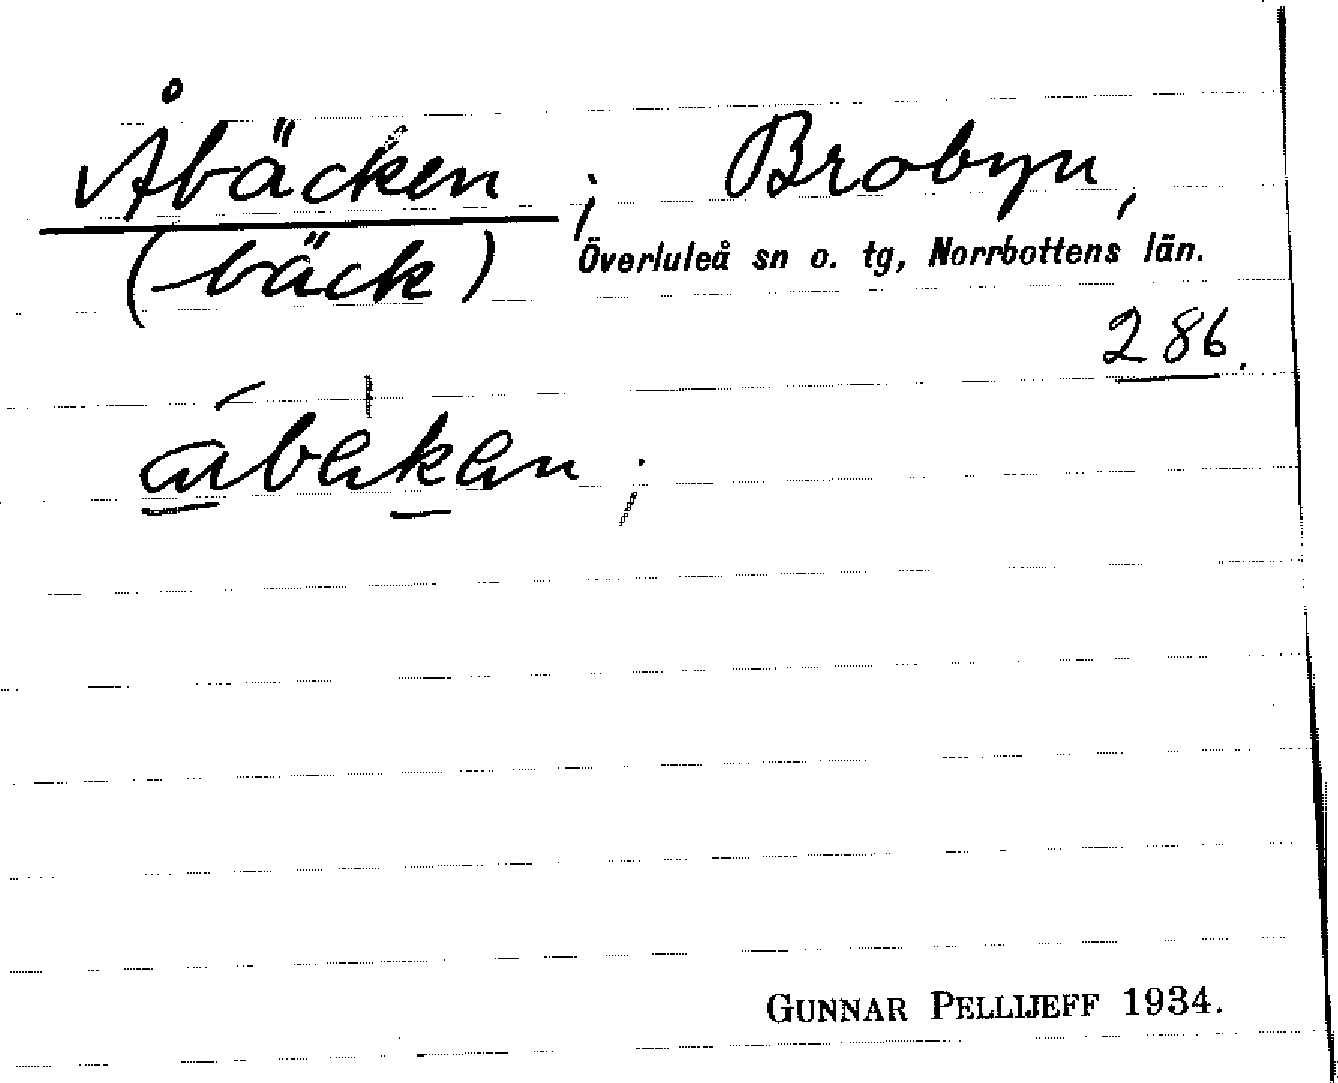 Åbäcken; Brobyn,
(bäck) Överluleå sn o. tg, Norrbottens län.
286.
GUNNAR PELLIJEFF 1934.